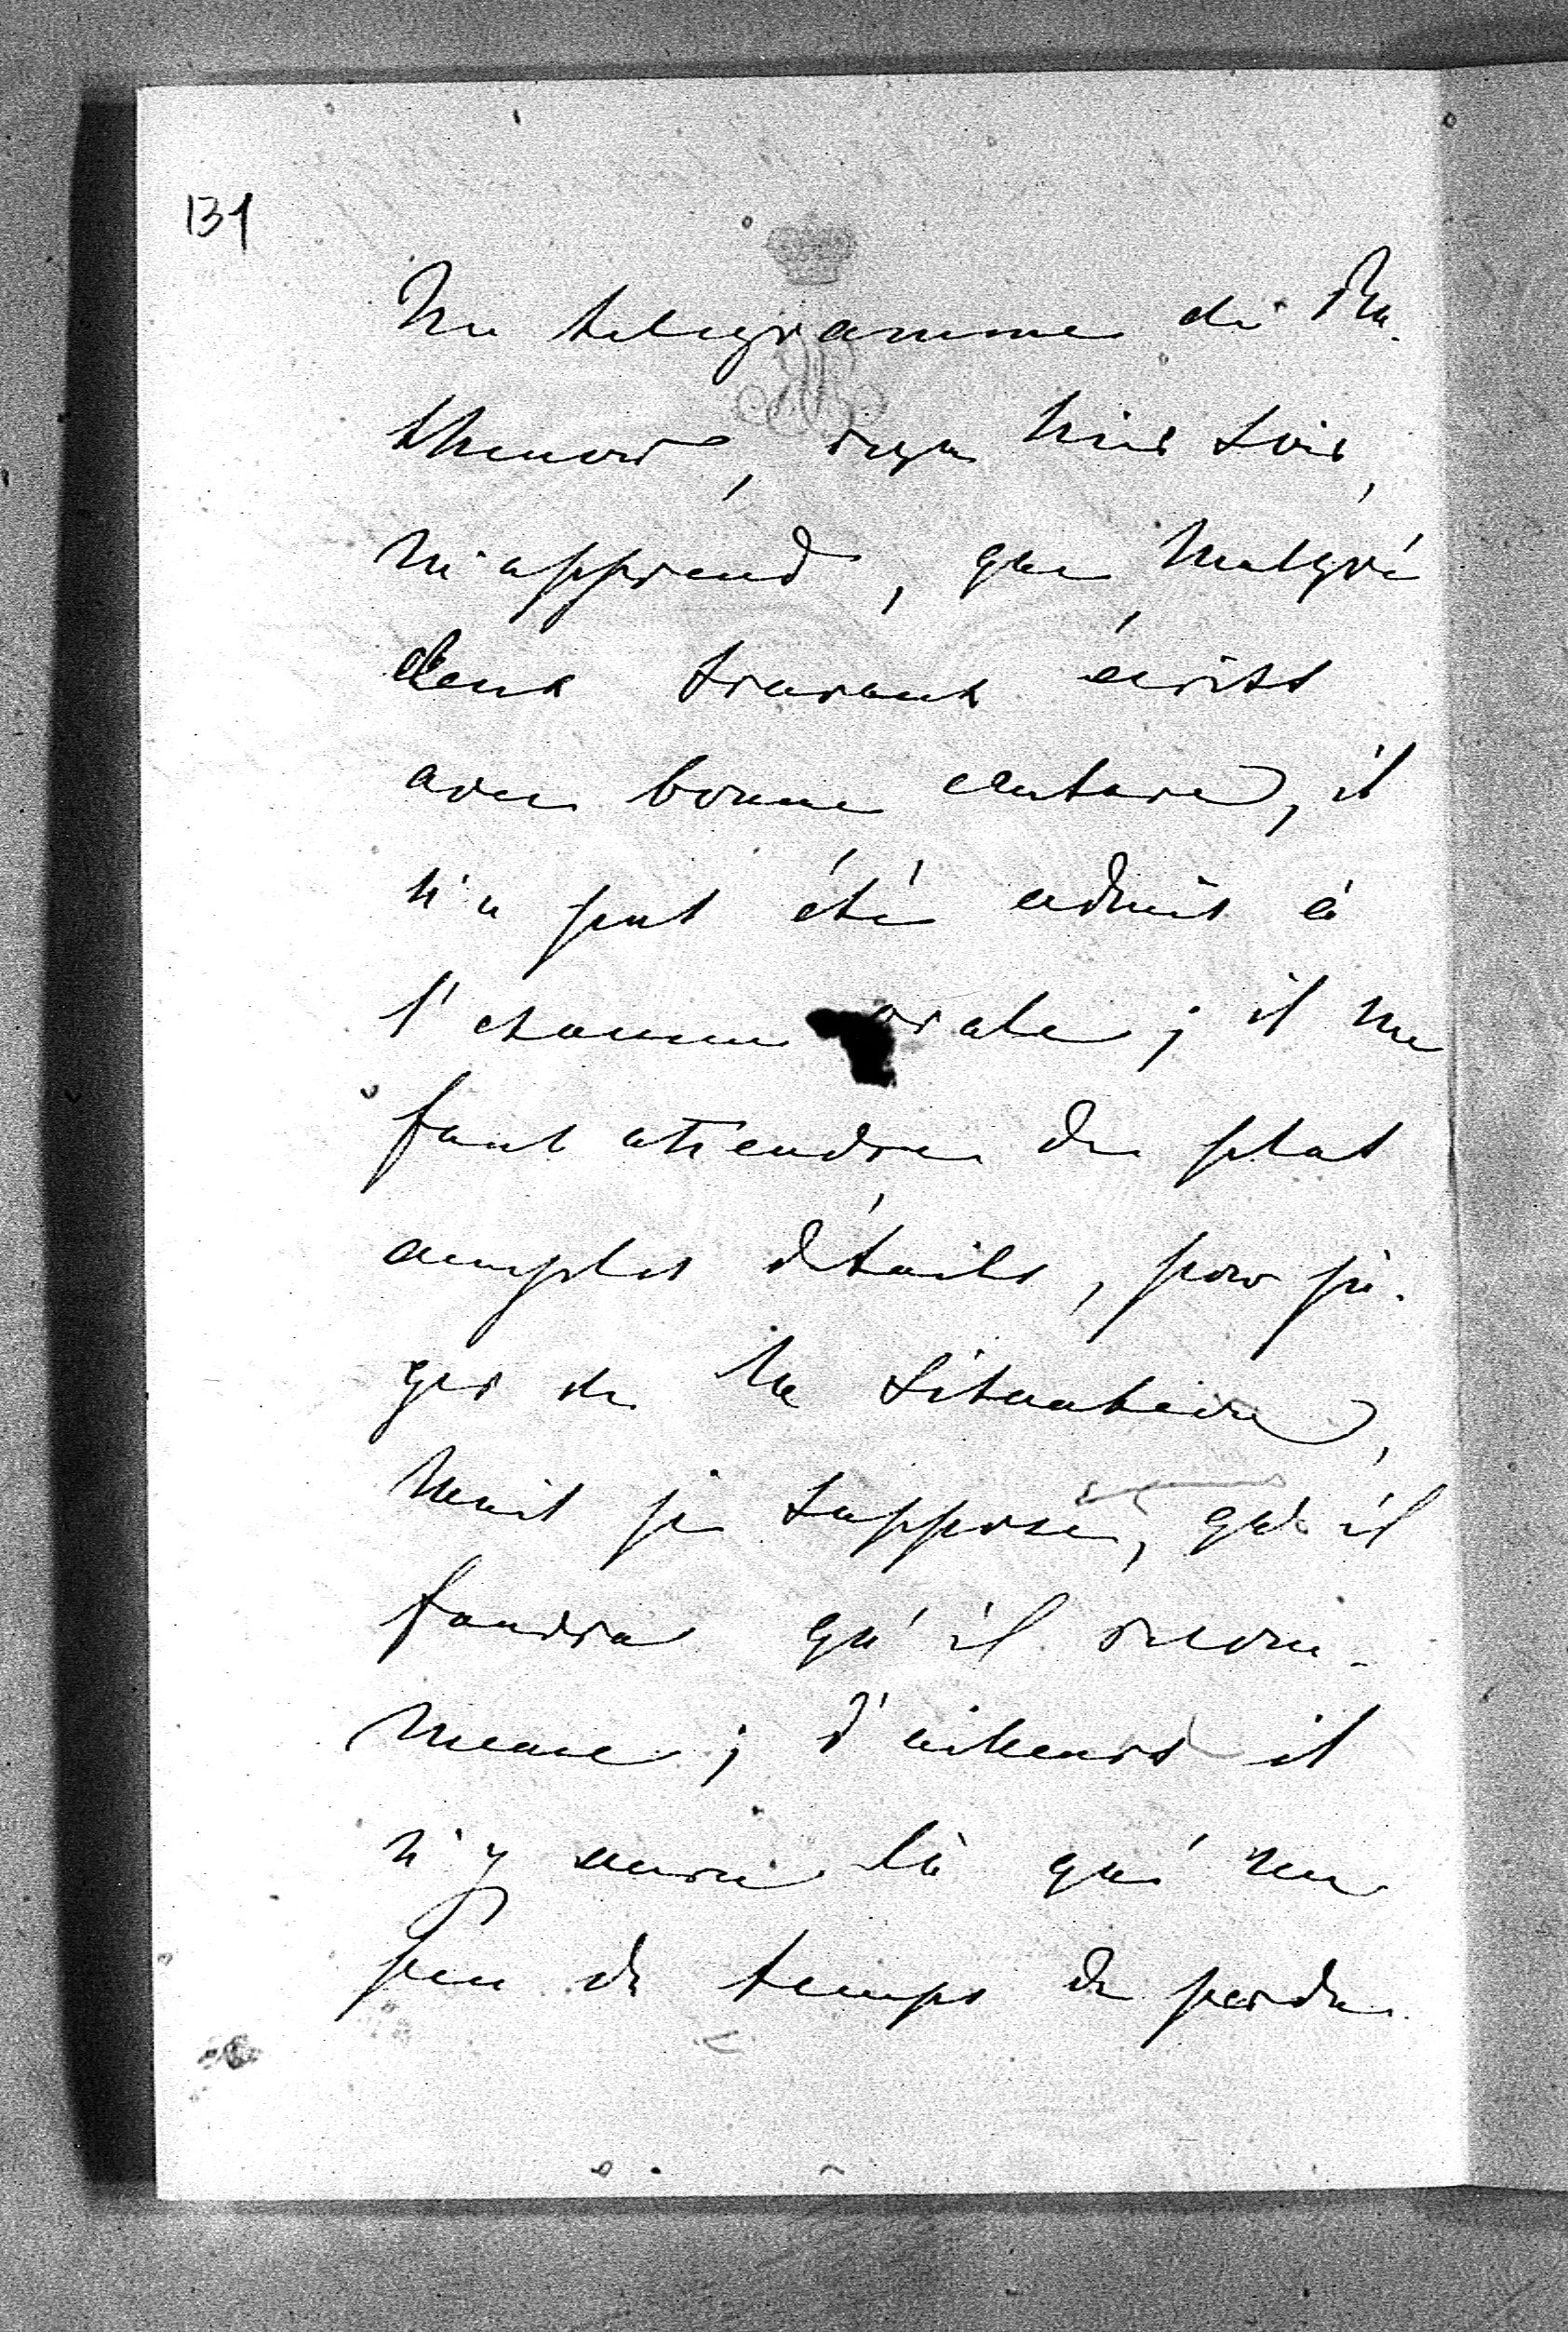 131
Un telegramme de Ra-
thenow, reçu hier soir,
m'apprend, que, malgré
deux travaux écrits
avec bonne censure, il
n'a pas été admis à
l'examen orale; il me
faut attendre de plus
amples détails, pour ju-
ger de la situation,
mais je suppose, qu'il
faudra qu'il recom-
mence; d'ailleurs il
n'y aura là qu'un
peu de temps de perdu.